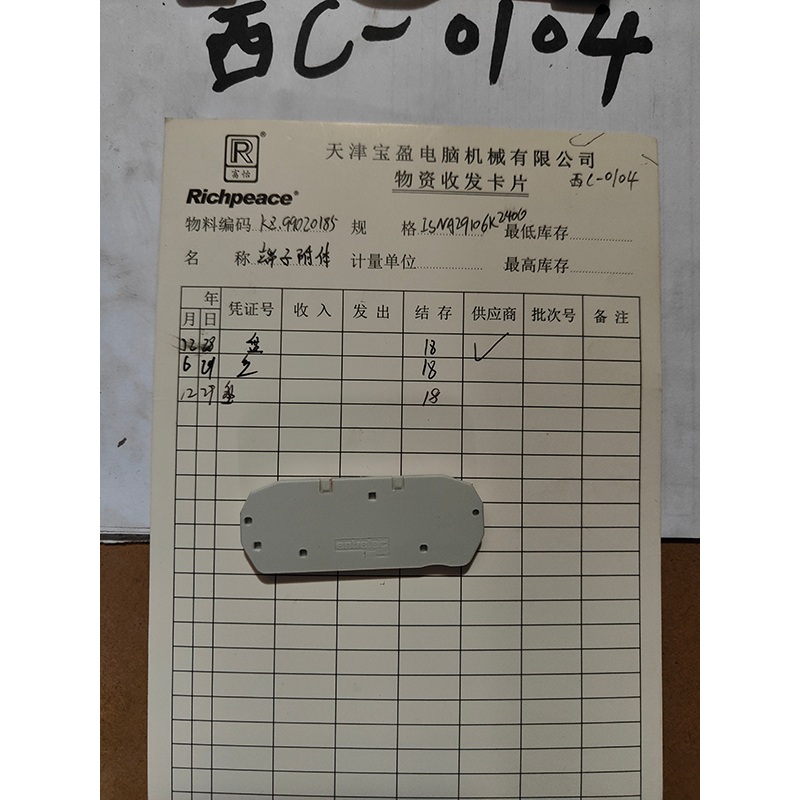 西C-0104
R®
富怡
Richpeace®
天津宝盈电脑机械有限公司
物资收发卡片
西C-0104
物料编码 KZ.99020185 规 格 ISNA29106K2400 最低库存
名 称 端子附件 计量单位 最高库存
年
月 日 凭证号 收入 发出 结存 供应商 批次号 备注
12 28 盘 18
6 29 18
12 29 盘 18